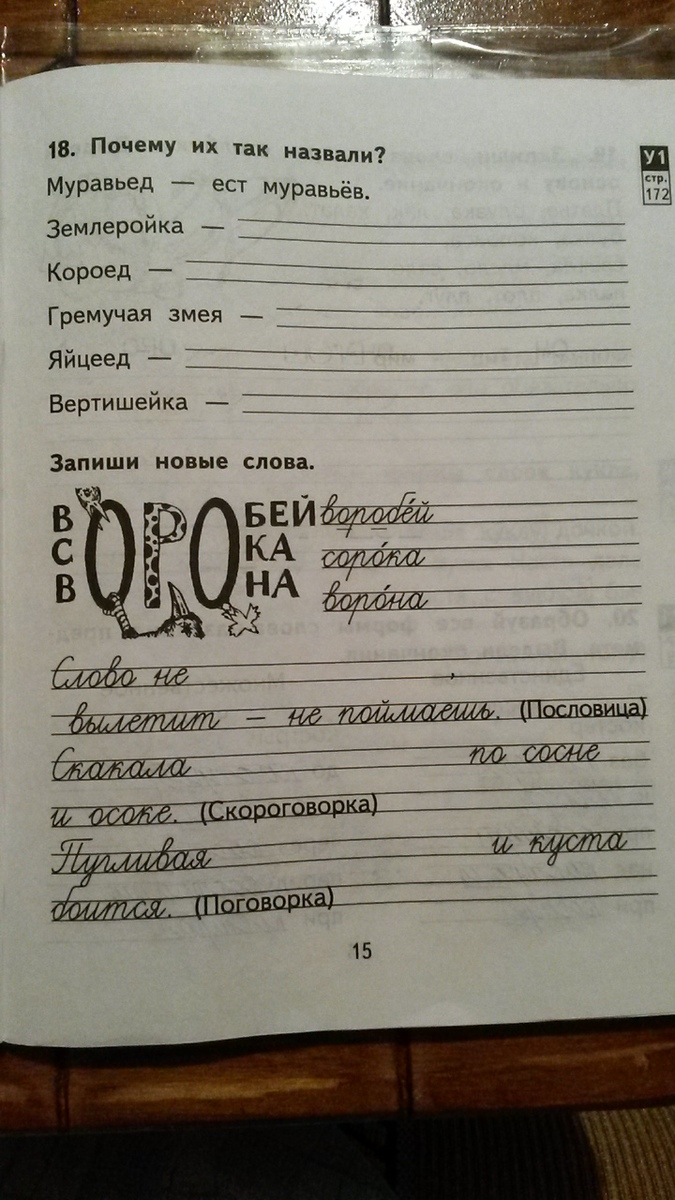 18. Почему их так назвали?
У1
стр.
172
Муравьед — ест муравьёв.
Землеройка —
Короед —
Гремучая змея —
Яйцеед —
Вертишейка —
Запиши новые слова.
ВОРОБЕЙ воробе́й
СОРОКА соро́ка
ВОРОНА воро́на
Слово не ,
вылетит — не поймаешь. (Пословица)
Скакала по сосне
и осоке. (Скороговорка)
Пугливая и куста
боится. (Поговорка)
15